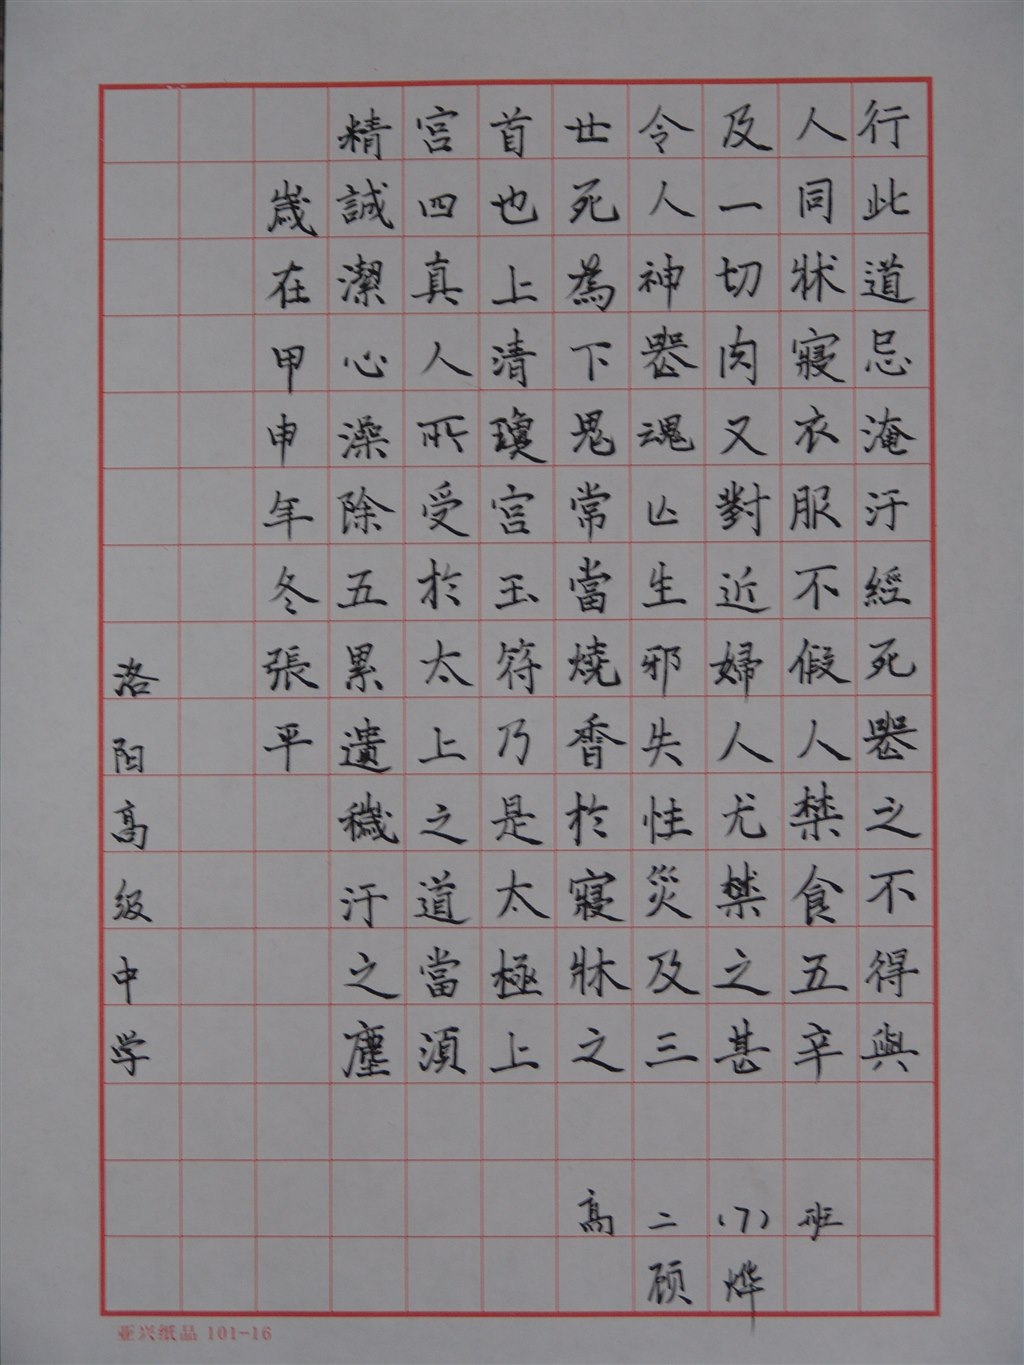 行此道忌淹汙經死喪之不得與
人同牀寢衣服不假人禁食五辛
及一切肉又對近婦人尤禁之甚
令人神喪魂亡生邪失性災及三
世死為下鬼常當燒香於寢牀之
首也上清瓊宮玉符乃是太極上
宮四真人所受於太上之道當須
精誠潔心澡除五累遺穢汙之塵
歲在甲申年冬張平
洛阳高级中学
高二(7)班
顾烨
亚兴纸品 101-16